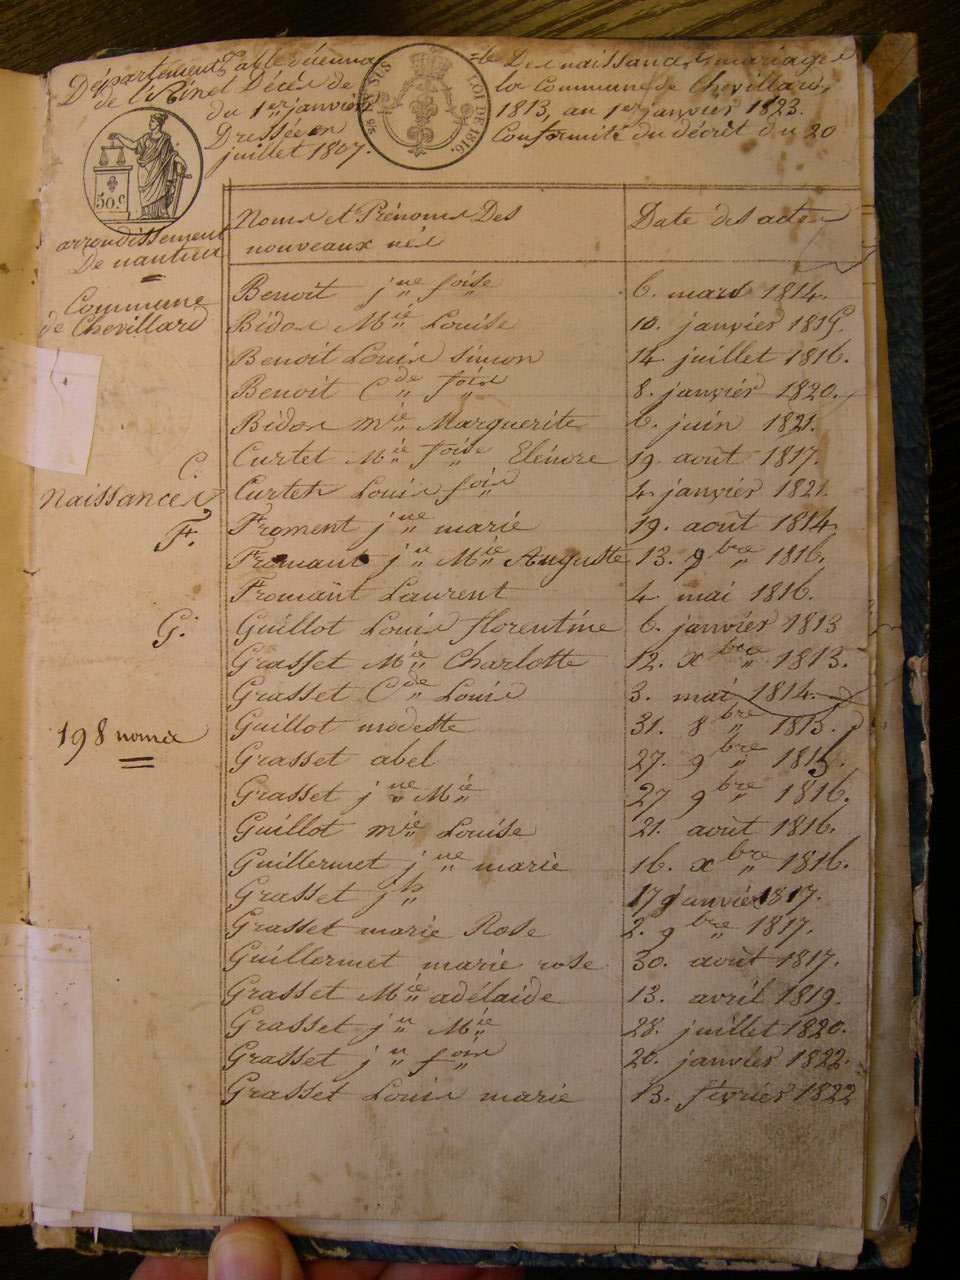 Département Table décenna le Des naissances, mariages
de l'Ain et Décès de la Commune de Chevillard,
du 1er janvier 1813, au 1er janvier 1823.
Dressée en Conformité du décret du 20
juillet 1807.
SUS
LOI DE 1816.
50.c
arrondissement
De nantua
Commune
de Chevillard
Noms et Prénoms Des nouveaux nés
Date des actes
Benoit jne foise 6. mars 1814.
Bidos Mie Louise 10. janvier 1819.
Benoit Louis Simon 14 juillet 1816.
Benoit Cde fois 8. janvier 1820.
Bidos mie Marguerite 6. juin 1821.
C.
Curtet Mie foise Elénore 19. août 1817.
Naissances
Curtet Louis fois 4 janvier 1821
F.
Froment jne marie 19. août 1814.
Fromant jn Mie Auguste 13. 9bre 1816.
Fromant Laurent 4 mai 1816.
G.
Guillot Louis florentine 6. janvier 1813
Grasset Mie Charlotte 12. xbre 1813.
Grasset Cde Louis 3. mai 1814.
198 noms
Guillot modeste 31. 8bre 1815.
Grasset abel 27. 9bre 1815.
Grasset jne Mie 27 9bre 1816.
Guillot mie Louise 21. août 1816.
Guillermet jne marie 16. xbre 1816.
Grasset jh 17 janvier 1817.
Grasset marie Rose 2. 9bre 1817.
Guillermet marie rose 30. août 1817.
Grasset Mie adélaide 13. avril 1819.
Grasset jn Mie 28. juillet 1820.
Grasset jn fois 20. janvier 1822.
Grasset Louis marie 13. février 1822